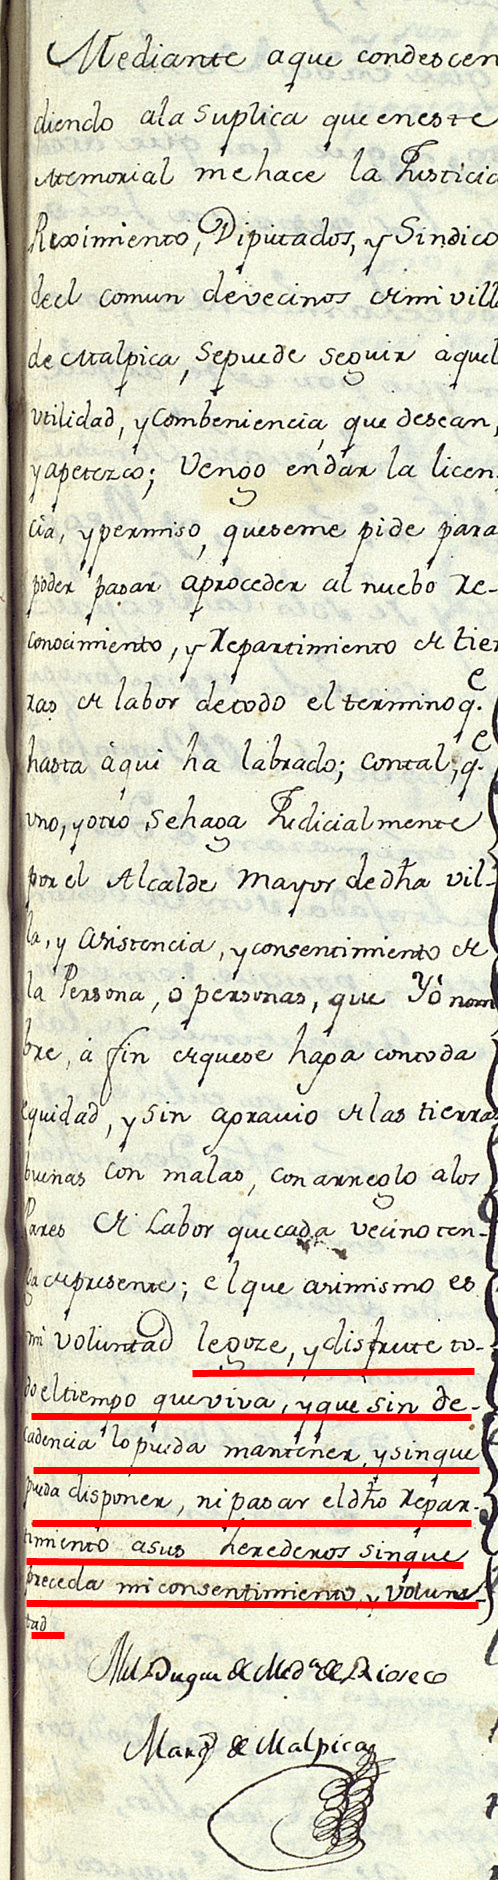 Mediante a que condescen
diendo ala Suplica que en este
Memorial me hace la Justicia
Reximiento, Diputados, y Sindico
deel comun de vecinos de mi villa
de Malpica, Sepuede seguir aquel
utilidad, y combeniencia, que desean,
y apetezco; Vengo en dar la licen
cia, y permiso, queseme pide para
poder pasar aproceder al nuebo Re-
conocimiento, y Repartimiento de tier
ras de labor de todo el termino q.e
hasta aqui ha labrado; contal, q.e
uno, y otro Sehaga Judicialmente
por el Alcalde Mayor de dha vil-
la, y asistencia, y consentimiento de
la Persona, ó personas, que Yó nom
bre, à fin de que se haga con toda
equidad, y sin agravio de las tierras
buenas con malas, con arreglo a los
Pares de Labor que cada vecino ten-
ga de presente; el que asimismo es
mi voluntad le goze, y disfrute to-
do el tiempo que viva, y que sin de-
cadencia lo pueda mantener, y sin que
pueda disponer, ni pasar el dho Repar-
timiento a sus herederos sin que
preceda mi consentimiento, y Volunt
tad
El Duque de Med.a de Rioseco
Marq.s de Malpica